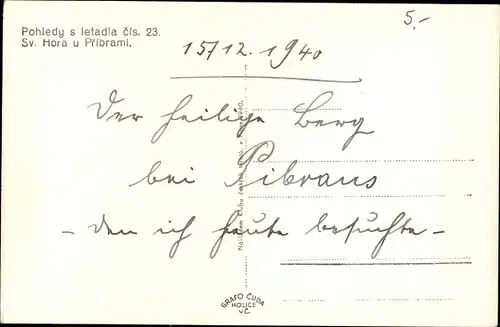 Pohledy s letadla čís. 23.
Sv. Hora u Příbrami.
5.-
15/12. 1940
Der heilige Berg
bei Pibrans
- den ich heute besuchte -
GRAFO ČUDA
HOLICE
v Č.